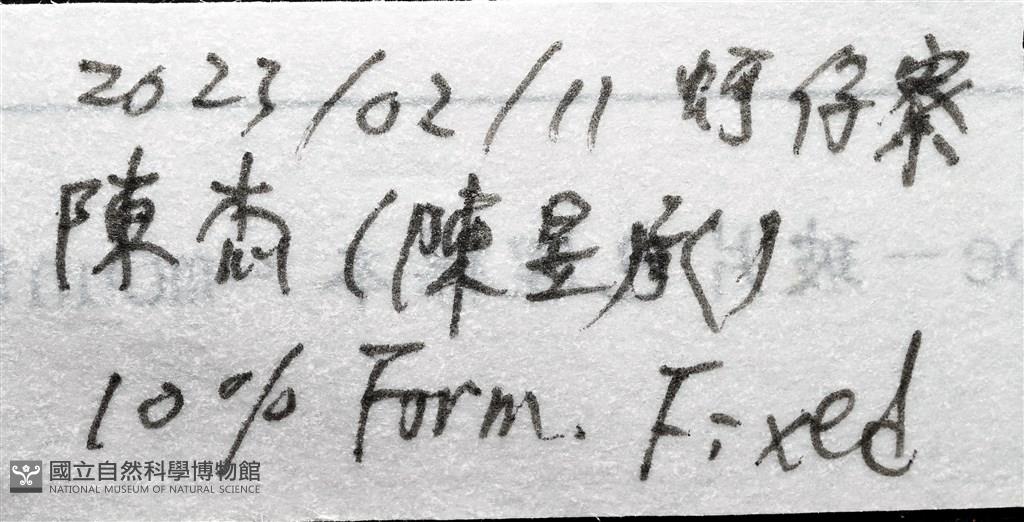 2023/02/11 蚵仔寮
陳 (陳昱
10% Form. Fixed
國立自然科學博物館
NATIONAL MUSEUM OF NATURAL SCIENCE